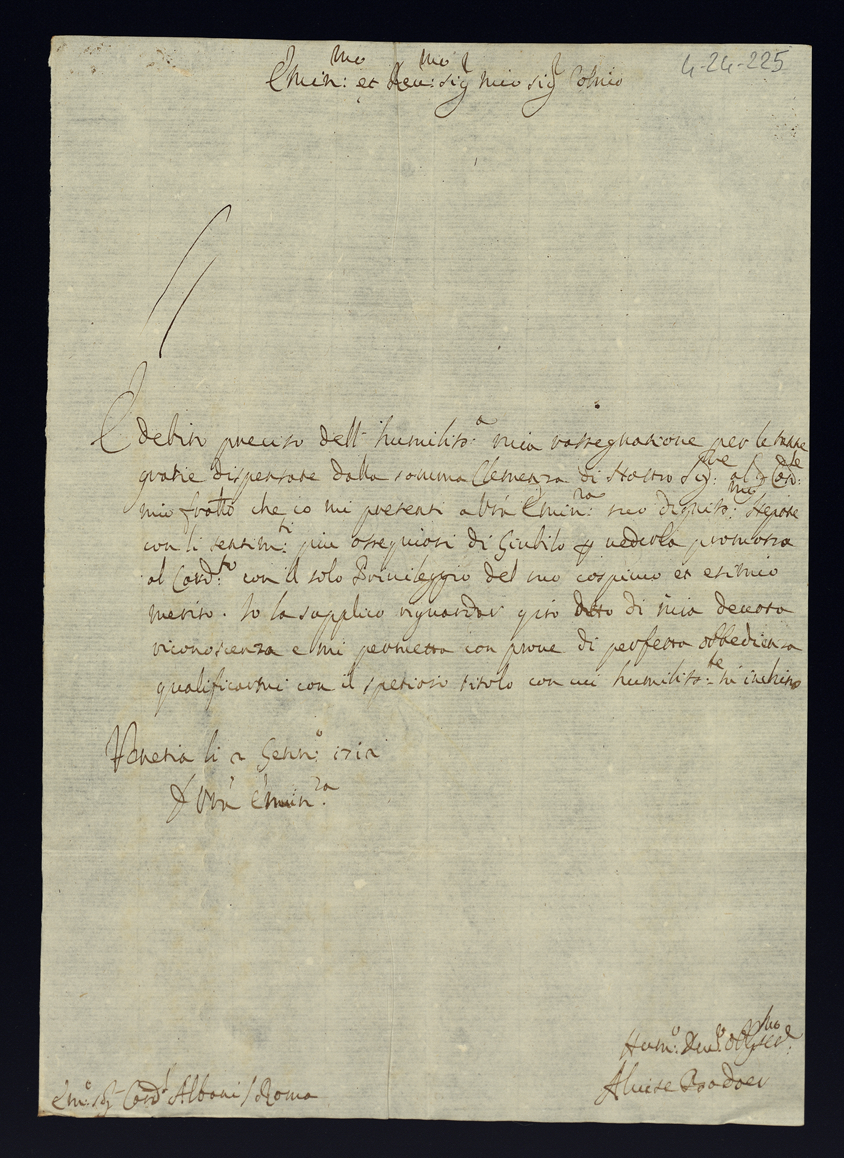 4-24-225
Emin:mo et Reu:mo Sig:r mio Sig:r Colmo
E debito preciso dell' humiliss:a mia rassegnatione per le tante
gratie dispensate dalla somma Clemenza di Nostro Sig:re al Card:le
mio fratto che io mi presenti a Vra Emin:za suo digniss:mo Nepote
con li sentim:ti più ossequiosi di Giubilo p uederla promossa
al Card:to con il solo Priuileggio del suo cospicuo et esimio
merito. Io la supplico riguardar qsto di mia deuota
riconoscenza e mi permetta con proue di perfetta obbedienza
qualificarmi con il spetioso titolo con cui humiliss:te m'inchino
Venetia li 2 Genn:o 1712
D Vra Emin:za
Hum:o Deu:o Obb:mo Ser:e
Aluise Badoer
Em:o Sig:r Card:l Albani / Roma